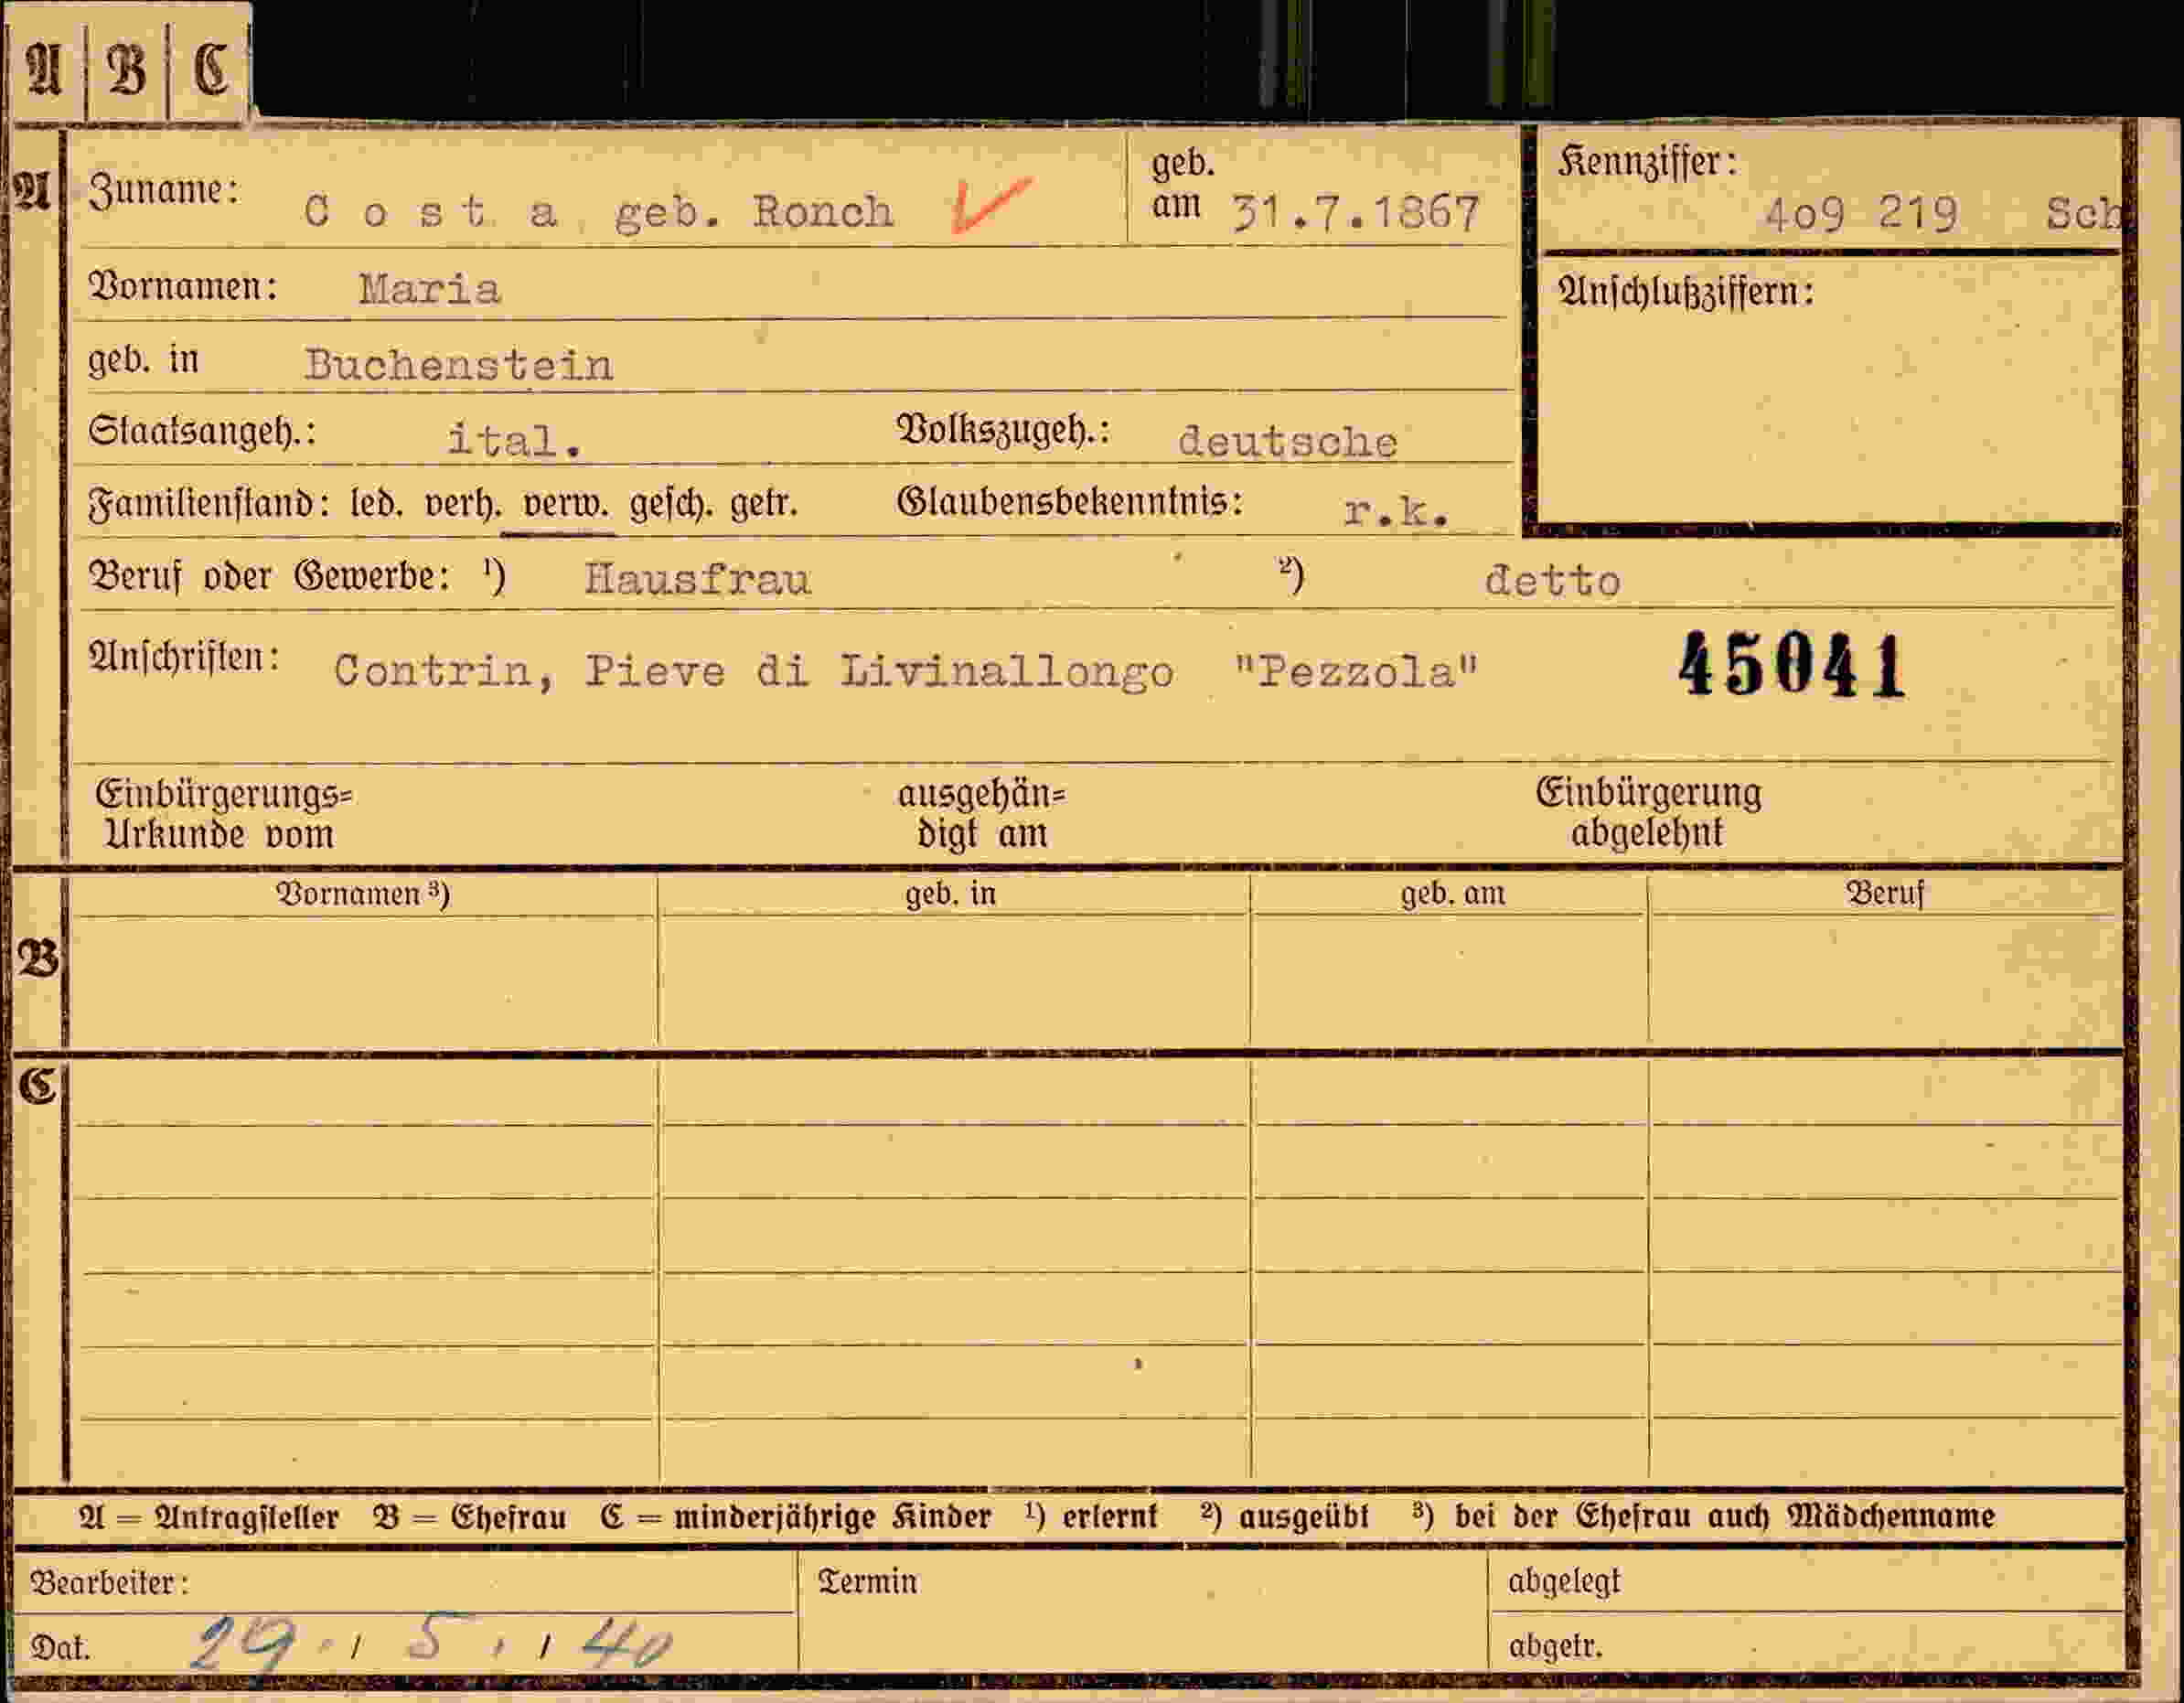 A B C
A Zuname: Costa geb. Ronch geb. am 31.7.1867 Kennziffer: 4o9 219 Sch
Vornamen: Maria Anschlußziffern:
geb. in Buchenstein
Staatsangeh.: ital. Volkszugeh.: deutsche
Familienstand: led. verh. verw. gesch. getr. Glaubensbekenntnis: r.k.
Beruf oder Gewerbe: ¹) Hausfrau ²) detto
Anschriften: Contrin, Pieve di Livinallongo "Pezzola" 45041
Einbürgerungs= ausgehän= Einbürgerung
Urkunde vom digt am abgelehnt
Vornamen ³) geb. in geb. am Beruf
B
C
A = Antragsteller B = Ehefrau C = minderjährige Kinder ¹) erlernt ²) ausgeübt ³) bei der Ehefrau auch Mädchenname
Bearbeiter: Termin abgelegt
Dat. 29. / 5. / 40 abgetr.